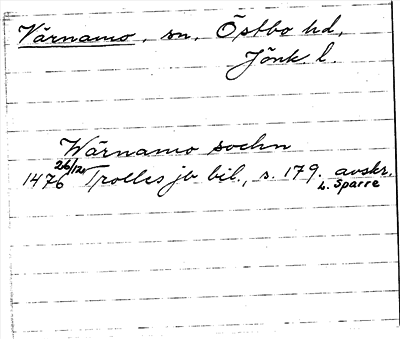 Värnamo, sn, Östbo hd,
Jönk l.
Wärnamo sochn
1476 26/12 Trolles jb bil., s. 179. avskr.
L. Sparre